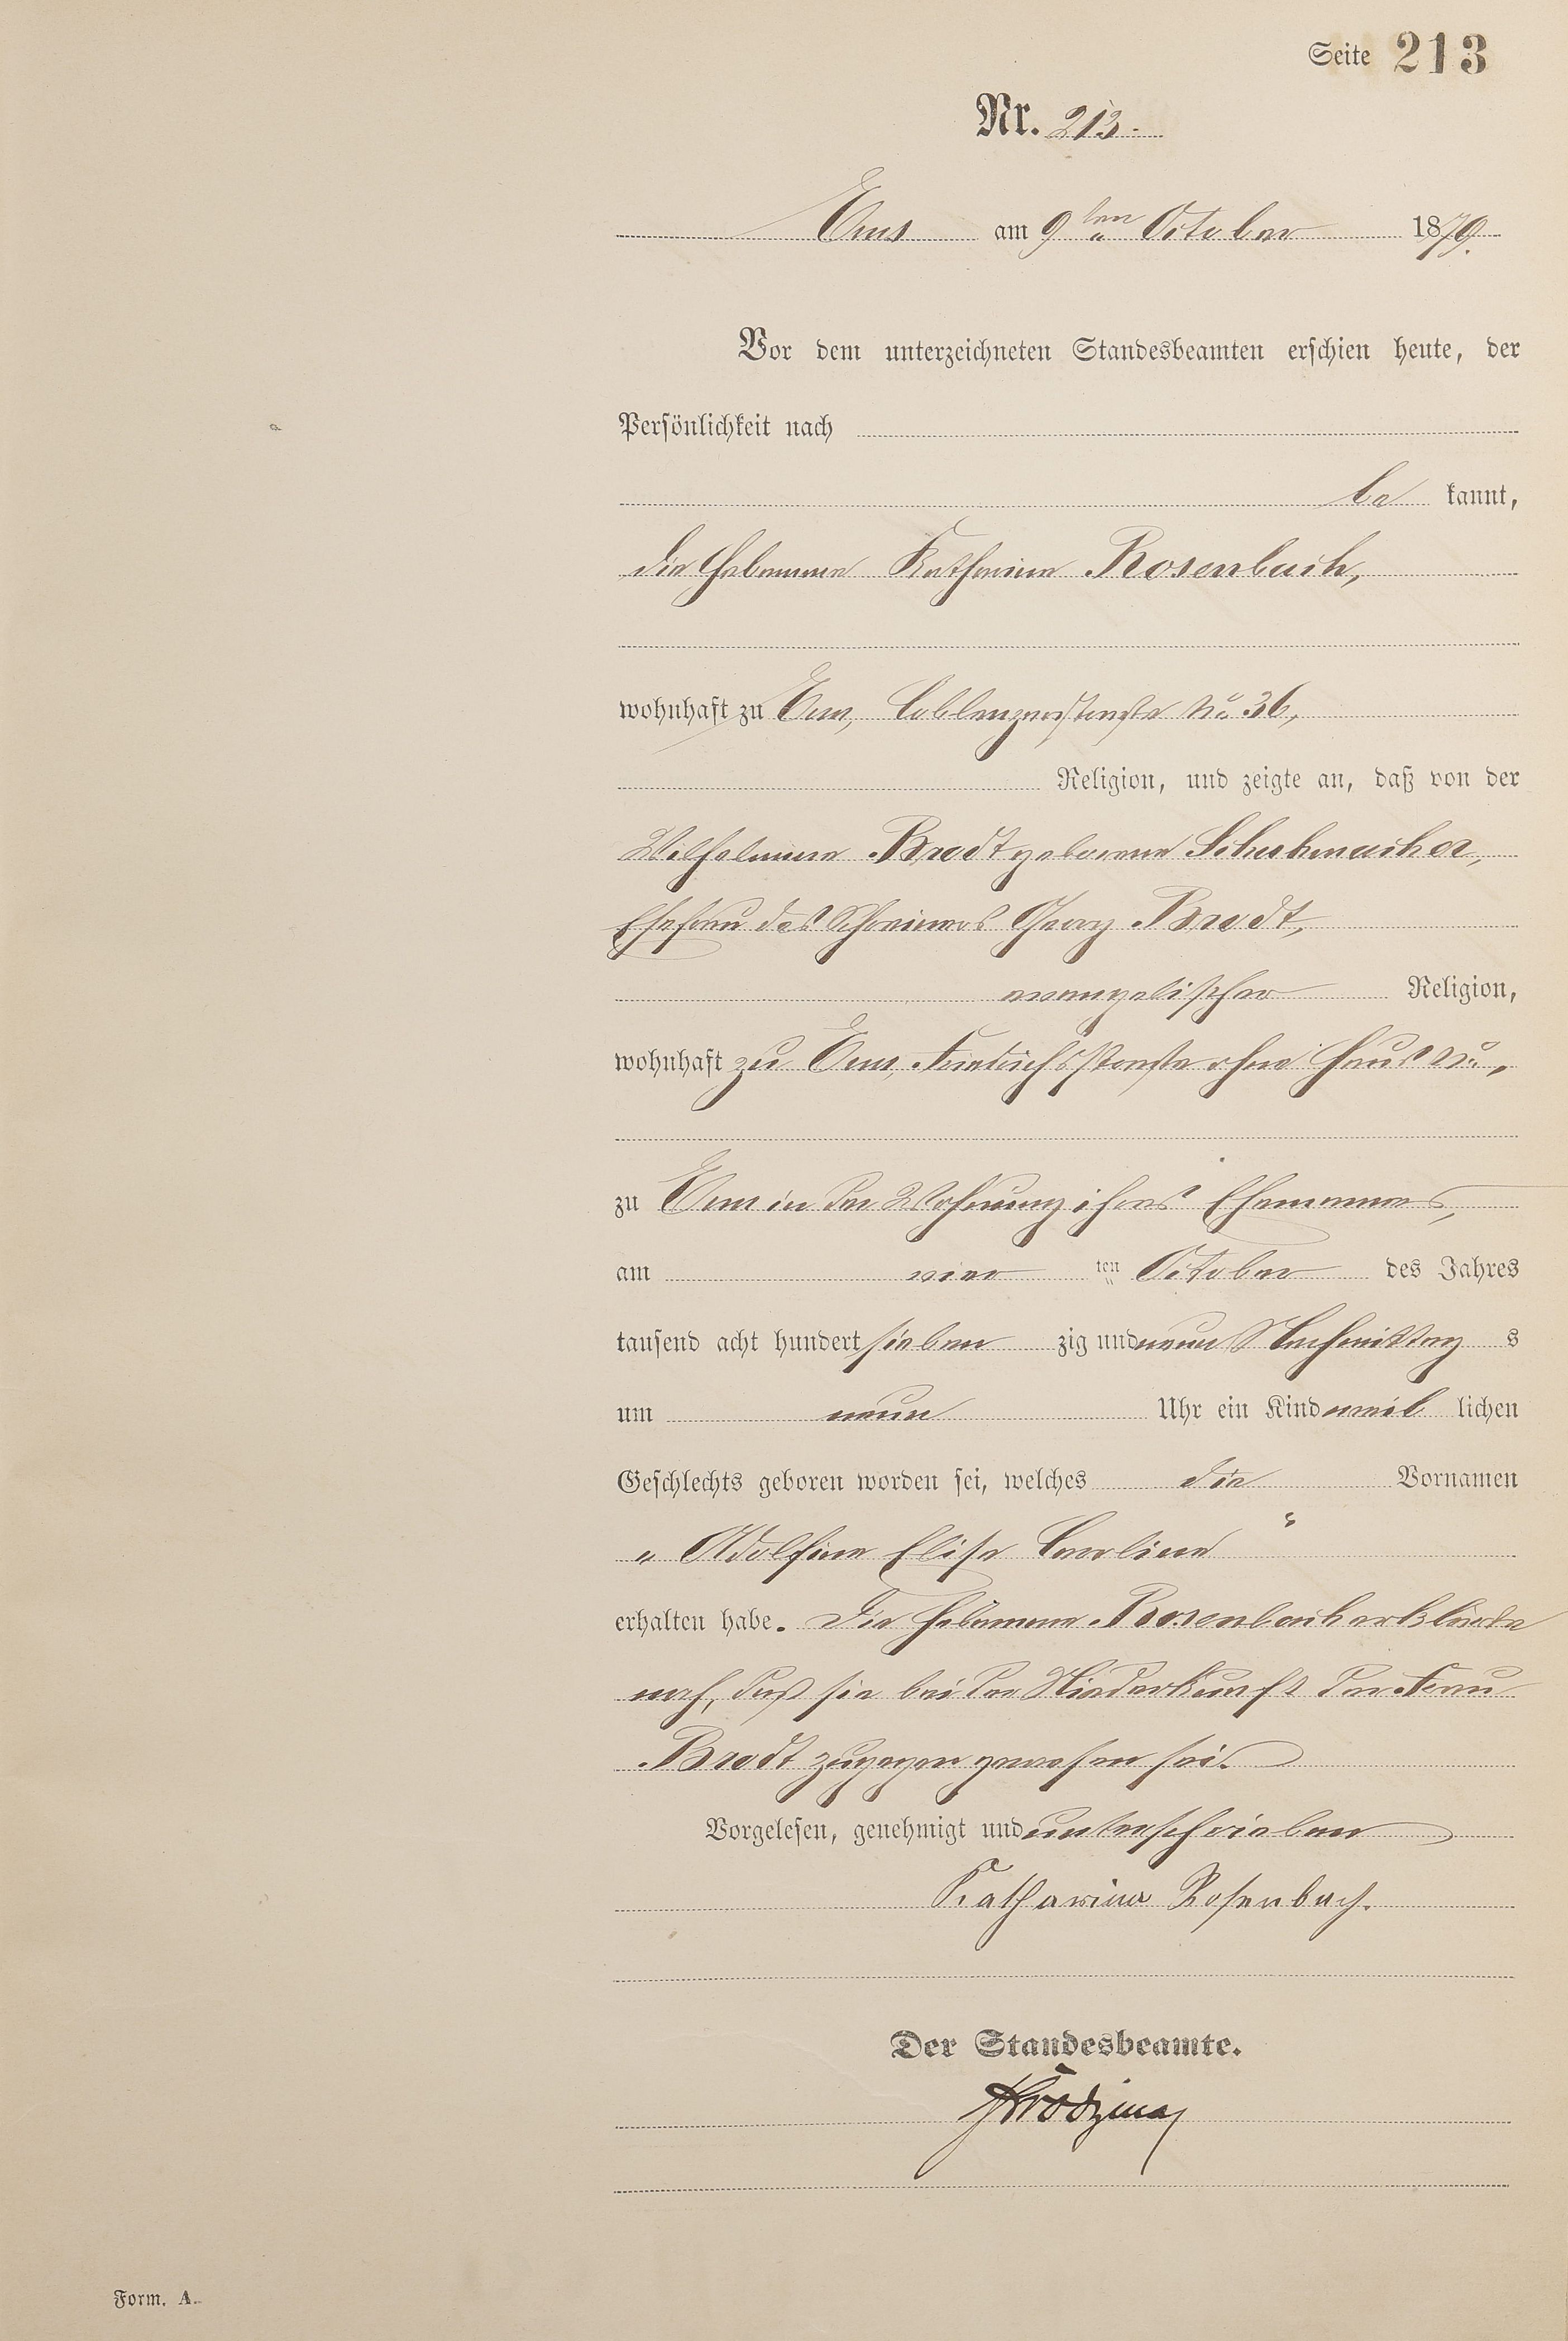 Seite 213
Nr. 213.
Ems am 9ten October 1879.
Vor dem unterzeichneten Standesbeamten erschien heute, der
Persönlichkeit nach
be kannt,
die Hebamme Katharina Rosenbach,
wohnhaft zu Ems, Coblenzerstraße No 36,
Religion, und zeigte an, daß von der
Wilhelmine Brodt geborene Schuhmacher,
Ehefrau des Schreiners Georg Brodt,
evangelischer Religion,
wohnhaft zu Ems, Friedrichsstraße ohne Haus No,
zu Ems in der Wohnung ihres Ehemannes,
am vier ten October des Jahres
tausend acht hundert sieben zig und neun Nachmittag s
um neun Uhr ein Kind weib lichen
Geschlechts geboren worden sei, welches die Vornamen
„ Adolfine Elise Caroline “
erhalten habe. Die Hebamme Rosenbach erklärte
noch, daß sie bei der Niederkunft der Frau
Brodt zugegen gewesen sei.
Vorgelesen, genehmigt und unterschrieben
Katharina Rosenbach.
Der Standesbeamte.
Form. A.